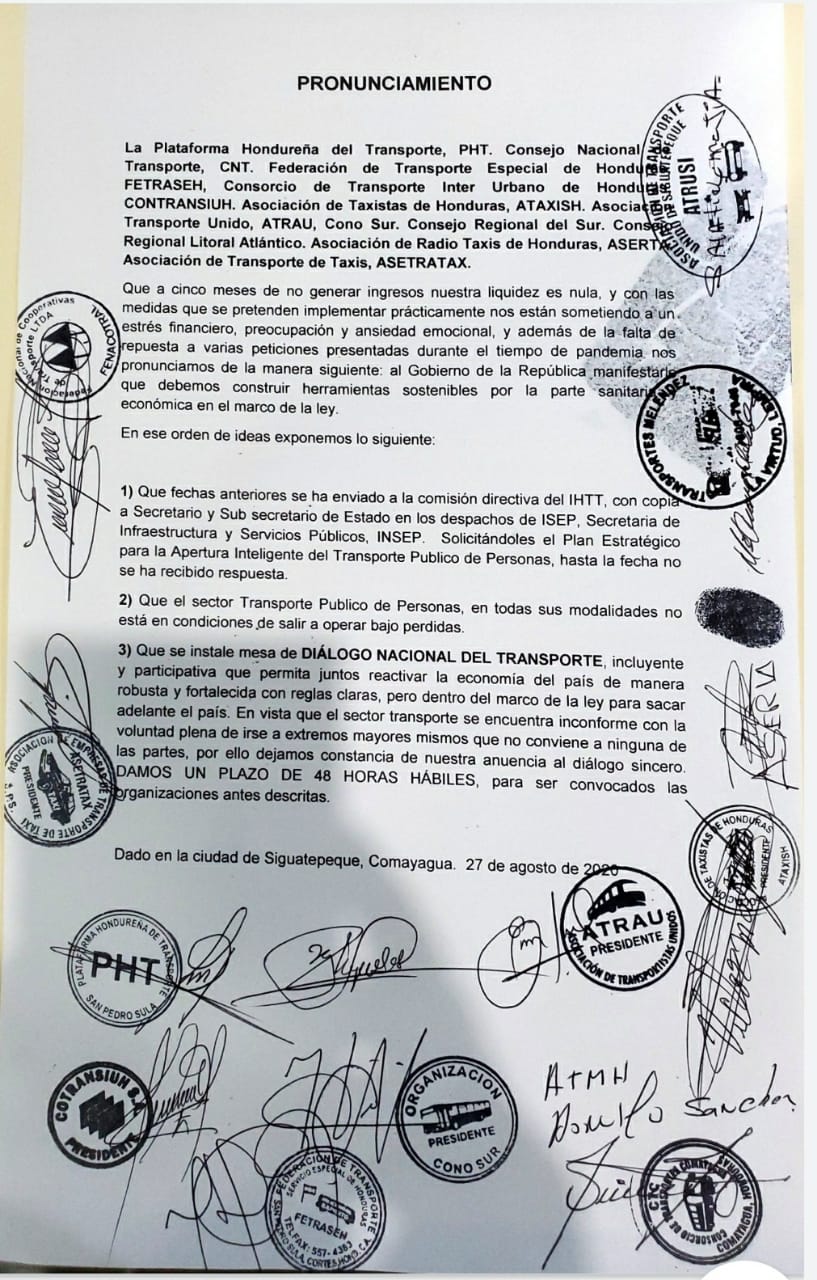 PRONUNCIAMIENTO
La Plataforma Hondureña del Transporte, PHT. Consejo Nacional
Transporte, CNT. Federación de Transporte Especial de Hondu
FETRASEH, Consorcio de Transporte Inter Urbano de Hondu
CONTRANSIUH. Asociación de Taxistas de Honduras, ATAXISH. Asociac
Transporte Unido, ATRAU, Cono Sur. Consejo Regional del Sur. Consejo
Regional Litoral Atlántico. Asociación de Radio Taxis de Honduras, ASERTA
Asociación de Transporte de Taxis, ASETRATAX.
Que a cinco meses de no generar ingresos nuestra liquidez es nula, y con las
medidas que se pretenden implementar prácticamente nos están sometiendo a un
estrés financiero, preocupación y ansiedad emocional, y además de la falta de
repuesta a varias peticiones presentadas durante el tiempo de pandemia nos
pronunciamos de la manera siguiente: al Gobierno de la República manifestarle
que debemos construir herramientas sostenibles por la parte sanitaria
económica en el marco de la ley.
En ese orden de ideas exponemos lo siguiente:
1) Que fechas anteriores se ha enviado a la comisión directiva del IHTT, con copia
a Secretario y Sub secretario de Estado en los despachos de ISEP, Secretaria de
Infraestructura y Servicios Públicos, INSEP. Solicitándoles el Plan Estratégico
para la Apertura Inteligente del Transporte Publico de Personas, hasta la fecha no
se ha recibido respuesta.
2) Que el sector Transporte Publico de Personas, en todas sus modalidades no
está en condiciones de salir a operar bajo perdidas.
3) Que se instale mesa de DIÁLOGO NACIONAL DEL TRANSPORTE, incluyente
y participativa que permita juntos reactivar la economía del país de manera
robusta y fortalecida con reglas claras, pero dentro del marco de la ley para sacar
adelante el país. En vista que el sector transporte se encuentra inconforme con la
voluntad plena de irse a extremos mayores mismos que no conviene a ninguna de
las partes, por ello dejamos constancia de nuestra anuencia al diálogo sincero.
DAMOS UN PLAZO DE 48 HORAS HÁBILES, para ser convocados las
organizaciones antes descritas.
Dado en la ciudad de Siguatepeque, Comayagua. 27 de agosto de 2020
ASOCIACIÓN DE TRANSPORTE
UNIDO DE SIGUATEPEQUE
ATRUSI
Federación Nacional de Cooperativas
de Transporte LTDA
FENACOTRAL
TRANSPORTES MELÉNDEZ
LA VIRTUD, LEMPIRA
ASOCIACION DE EMPRESAS DE TRANSPORTE DE TAXI
ASETRATAX
PRESIDENTE
S.P.S.
ASERTA
DE TAXISTAS DE HONDURAS
PRESIDENTE
ATAXISH
PLATAFORMA HONDUREÑA DE TRANSPORTE
PHT
SAN PEDRO SULA
ATRAU
PRESIDENTE
ASOCIACIÓN DE TRANSPORTISTAS UNIDOS
COTRANSIUH S.A.
PRESIDENTE
ORGANIZACION
PRESIDENTE
CONO SUR
ATMH
Romilo Sanchez
FEDERACIÓN DE TRANSPORTE
SERVICIO ESPECIAL DE HONDURAS
FETRASEH
TELFAX: 557-4383
SULA, CORTES, HOND. C.A.
CTC
CONSORCIO DE TRANSPORTE COMAYAGUA
COMAYAGUA, HONDURAS